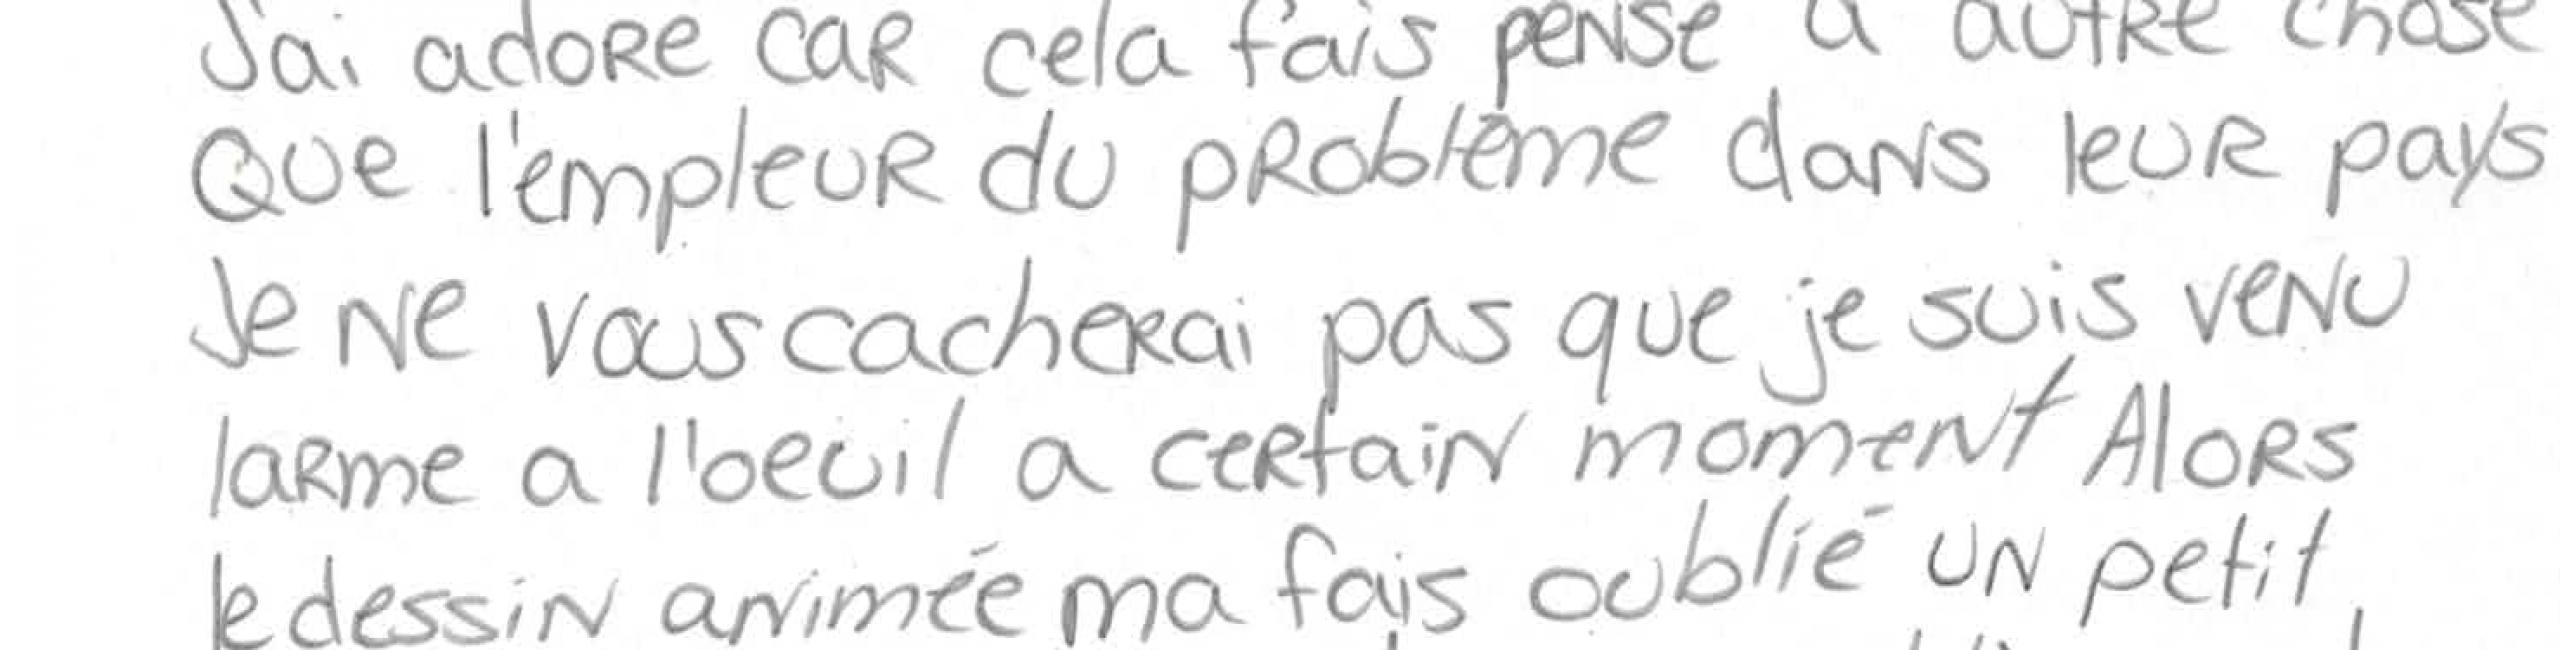 J'ai adore car cela fais pense a autre chose
Que l'empleur du problème dans leur pays
Je ne vous cacherai pas que je suis venu
larme a l'oeuil a certain moment Alors
le dessin animée ma fais oublié un petit